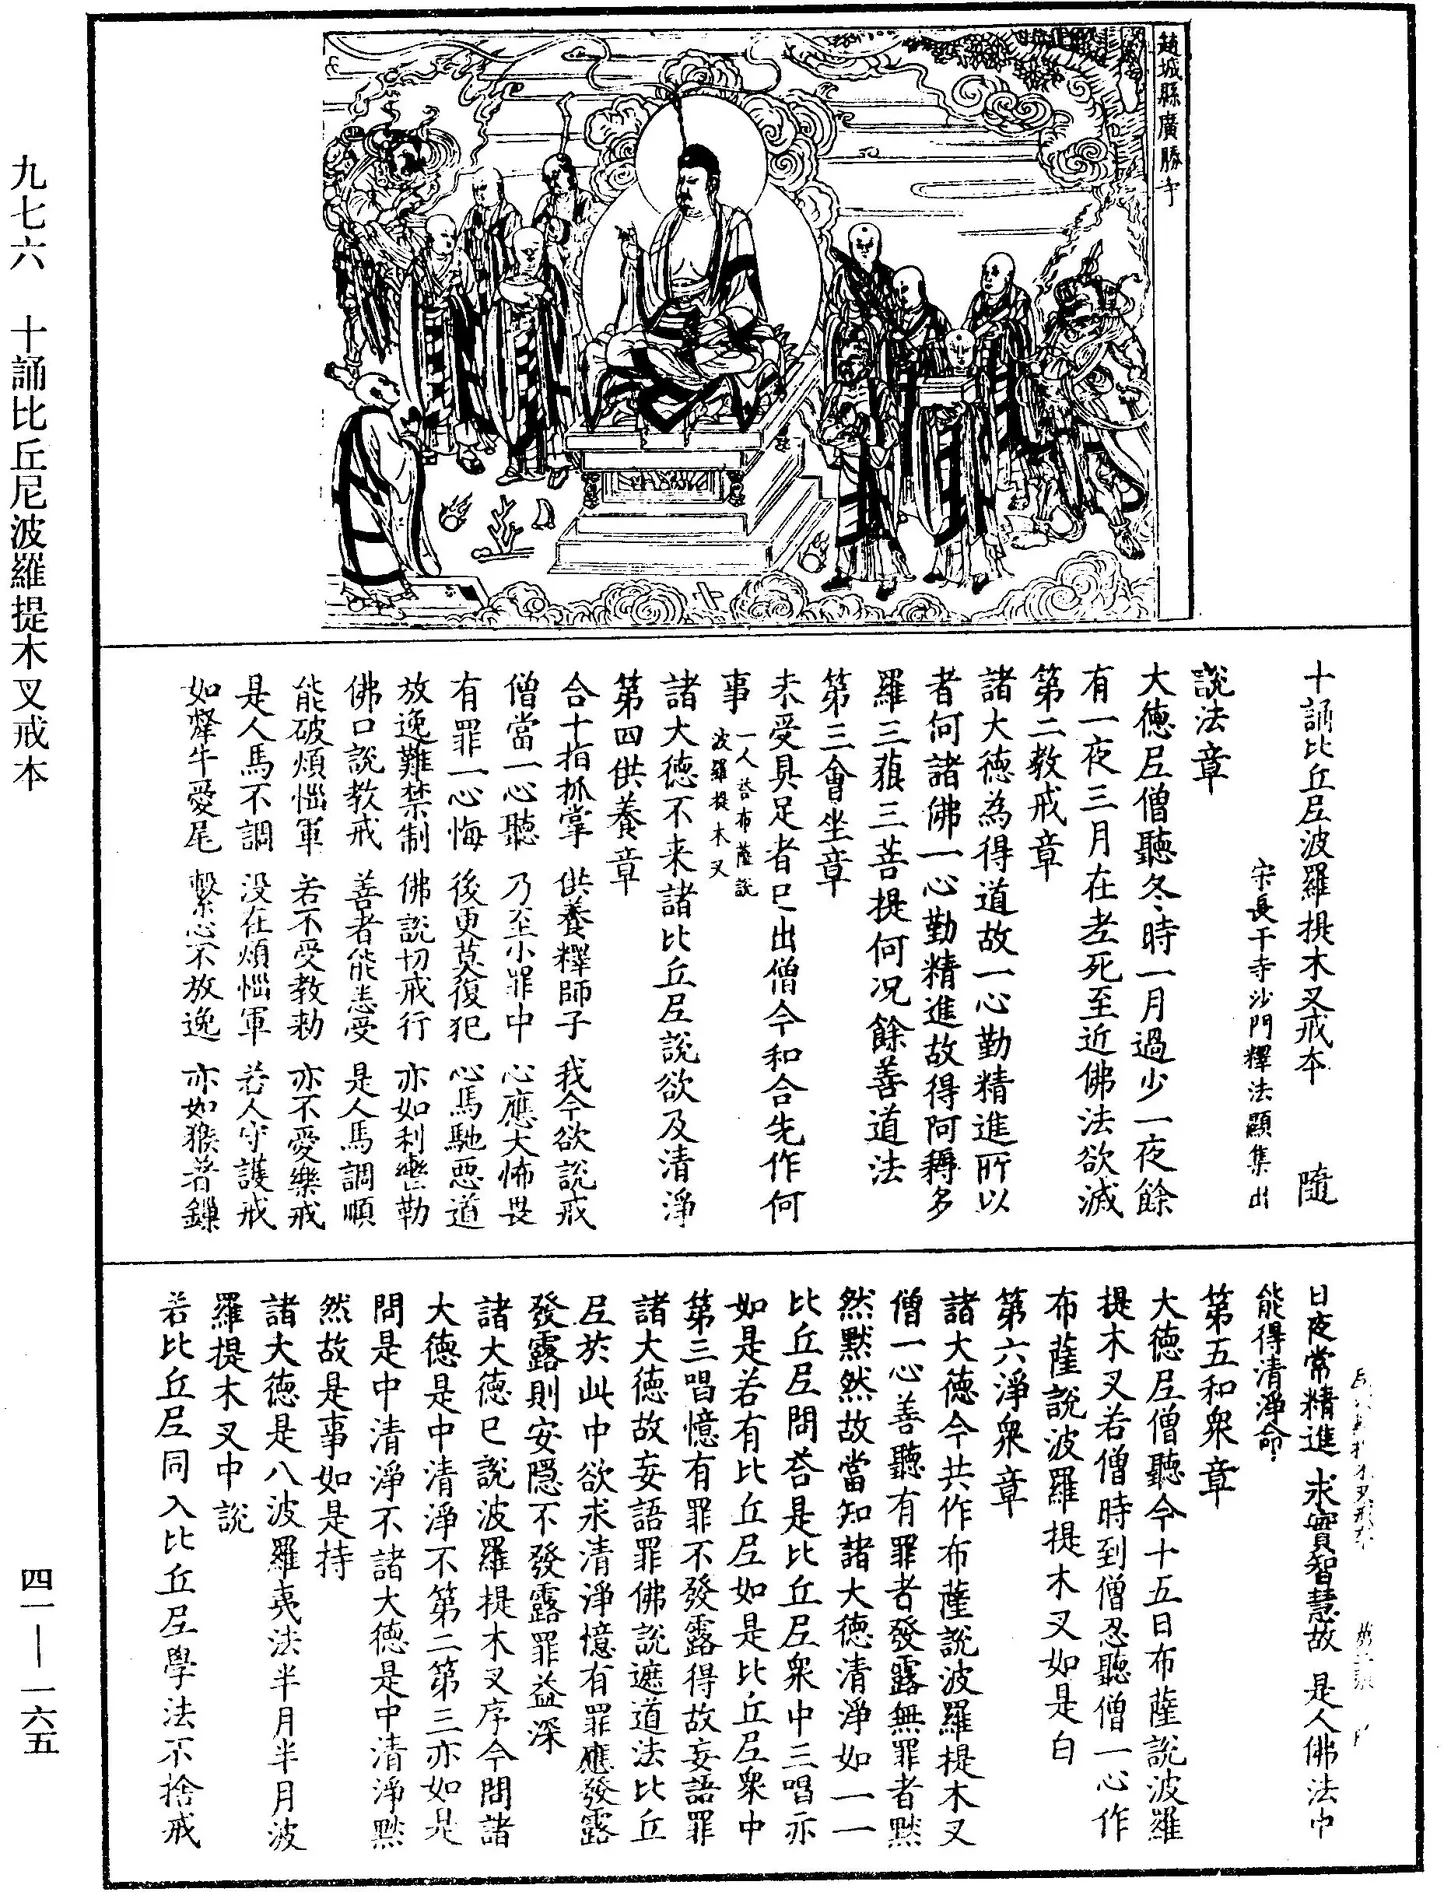 趙城縣廣勝寺
九七六　十誦比丘尼波羅提木叉戒本
四一——一六五
十誦比丘尼波羅提木叉戒本　隨
宋長干寺沙門釋法顯集出
說法章
大德尼僧聽冬時一月過少一夜餘
有一夜三月在老死至近佛法欲滅
第二教戒章
諸大德為得道故一心勤精進所以
者何諸佛一心勤精進故得阿耨多
羅三藐三菩提何況餘善道法
第三會坐章
未受具足者已出僧今和合先作何
事一人荅布薩說波羅提木叉
諸大德不来諸比丘尼說欲及清淨
第四供養章
合十指抓掌　供養釋師子　我今欲說戒
僧當一心聽　乃至小罪中　心應大怖畏
有罪一心悔　後更莫復犯　心馬馳惡道
放逸難禁制　佛說切戒行　亦如利轡勒
佛口說教戒　善者能悉受　是人馬調順
能破煩惱軍　若不受教勑　亦不愛樂戒
是人馬不調　没在煩惱軍　若人守護戒
如犛牛愛尾　繫心不放逸　亦如猴著鏁
日夜常精進　求實智慧故　是人佛法中
能得清淨命
第五和衆章
大德尼僧聽今十五日布薩說波羅
提木叉若僧時到僧忍聽僧一心作
布薩說波羅提木叉如是白
第六淨衆章
諸大德今共作布薩說波羅提木叉
僧一心善聽有罪者發露無罪者默
然默然故當知諸大德清淨如一一
比丘尼問荅是比丘尼衆中三唱亦
如是若有比丘尼如是比丘尼衆中
第三唱憶有罪不發露得故妄語罪
諸大德故妄語罪佛說遮道法比丘
尼於此中欲求清淨憶有罪應發露
發露則安隱不發露罪益深
諸大德已說波羅提木叉序今問諸
大德是中清淨不第二第三亦如是
問是中清淨不諸大德是中清淨默
然故是事如是持
諸大德是八波羅夷法半月半月波
羅提木叉中說
若比丘尼同入比丘尼學法不捨戒